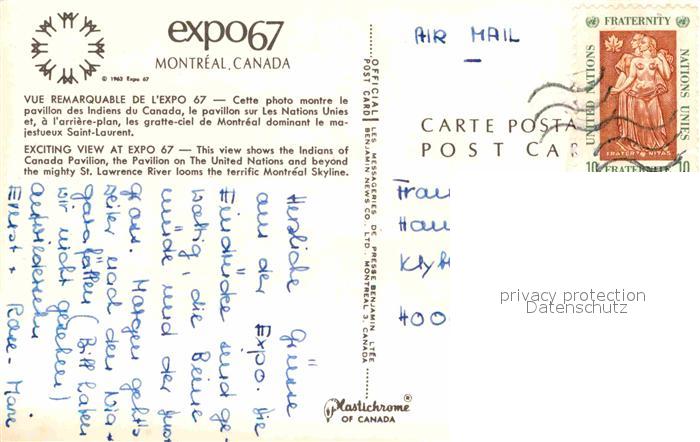 expo67
MONTRÉAL, CANADA
© 1963 Expo 67
VUE REMARQUABLE DE L'EXPO 67 — Cette photo montre le
pavillon des Indiens du Canada, le pavillon sur Les Nations Unies
et, à l'arrière-plan, les gratte-ciel de Montréal dominant le ma-
jestueux Saint-Laurent.
EXCITING VIEW AT EXPO 67 — This view shows the Indians of
Canada Pavilion, the Pavilion on The United Nations and beyond
the mighty St. Lawrence River looms the terrific Montréal Skyline.
Herzliche Grüsse
aus der Expo. Die
Eindrücke sind ge-
waltig, die Beine
müde und der
Morgen geht's
weiter nach den Nia-
garafällen (
wir nicht gesehen)
Ernst + Rose-Marie
OFFICIAL POST CARD
LES MESSAGERIES DE PRESSE BENJAMIN LTÉE
BENJAMIN NEWS CO. LTD. MONTREAL 3, CANADA
Plastichrome®
OF CANADA
AIR MAIL
CARTE POSTA
POST CAR
FRATERNITY
UNITED NATIONS
NATIONS UNIES
FRATERNITAS
10 FRATERNITÉ 10
Frau
Hau
Klyb
400
privacy protection
Datenschutz